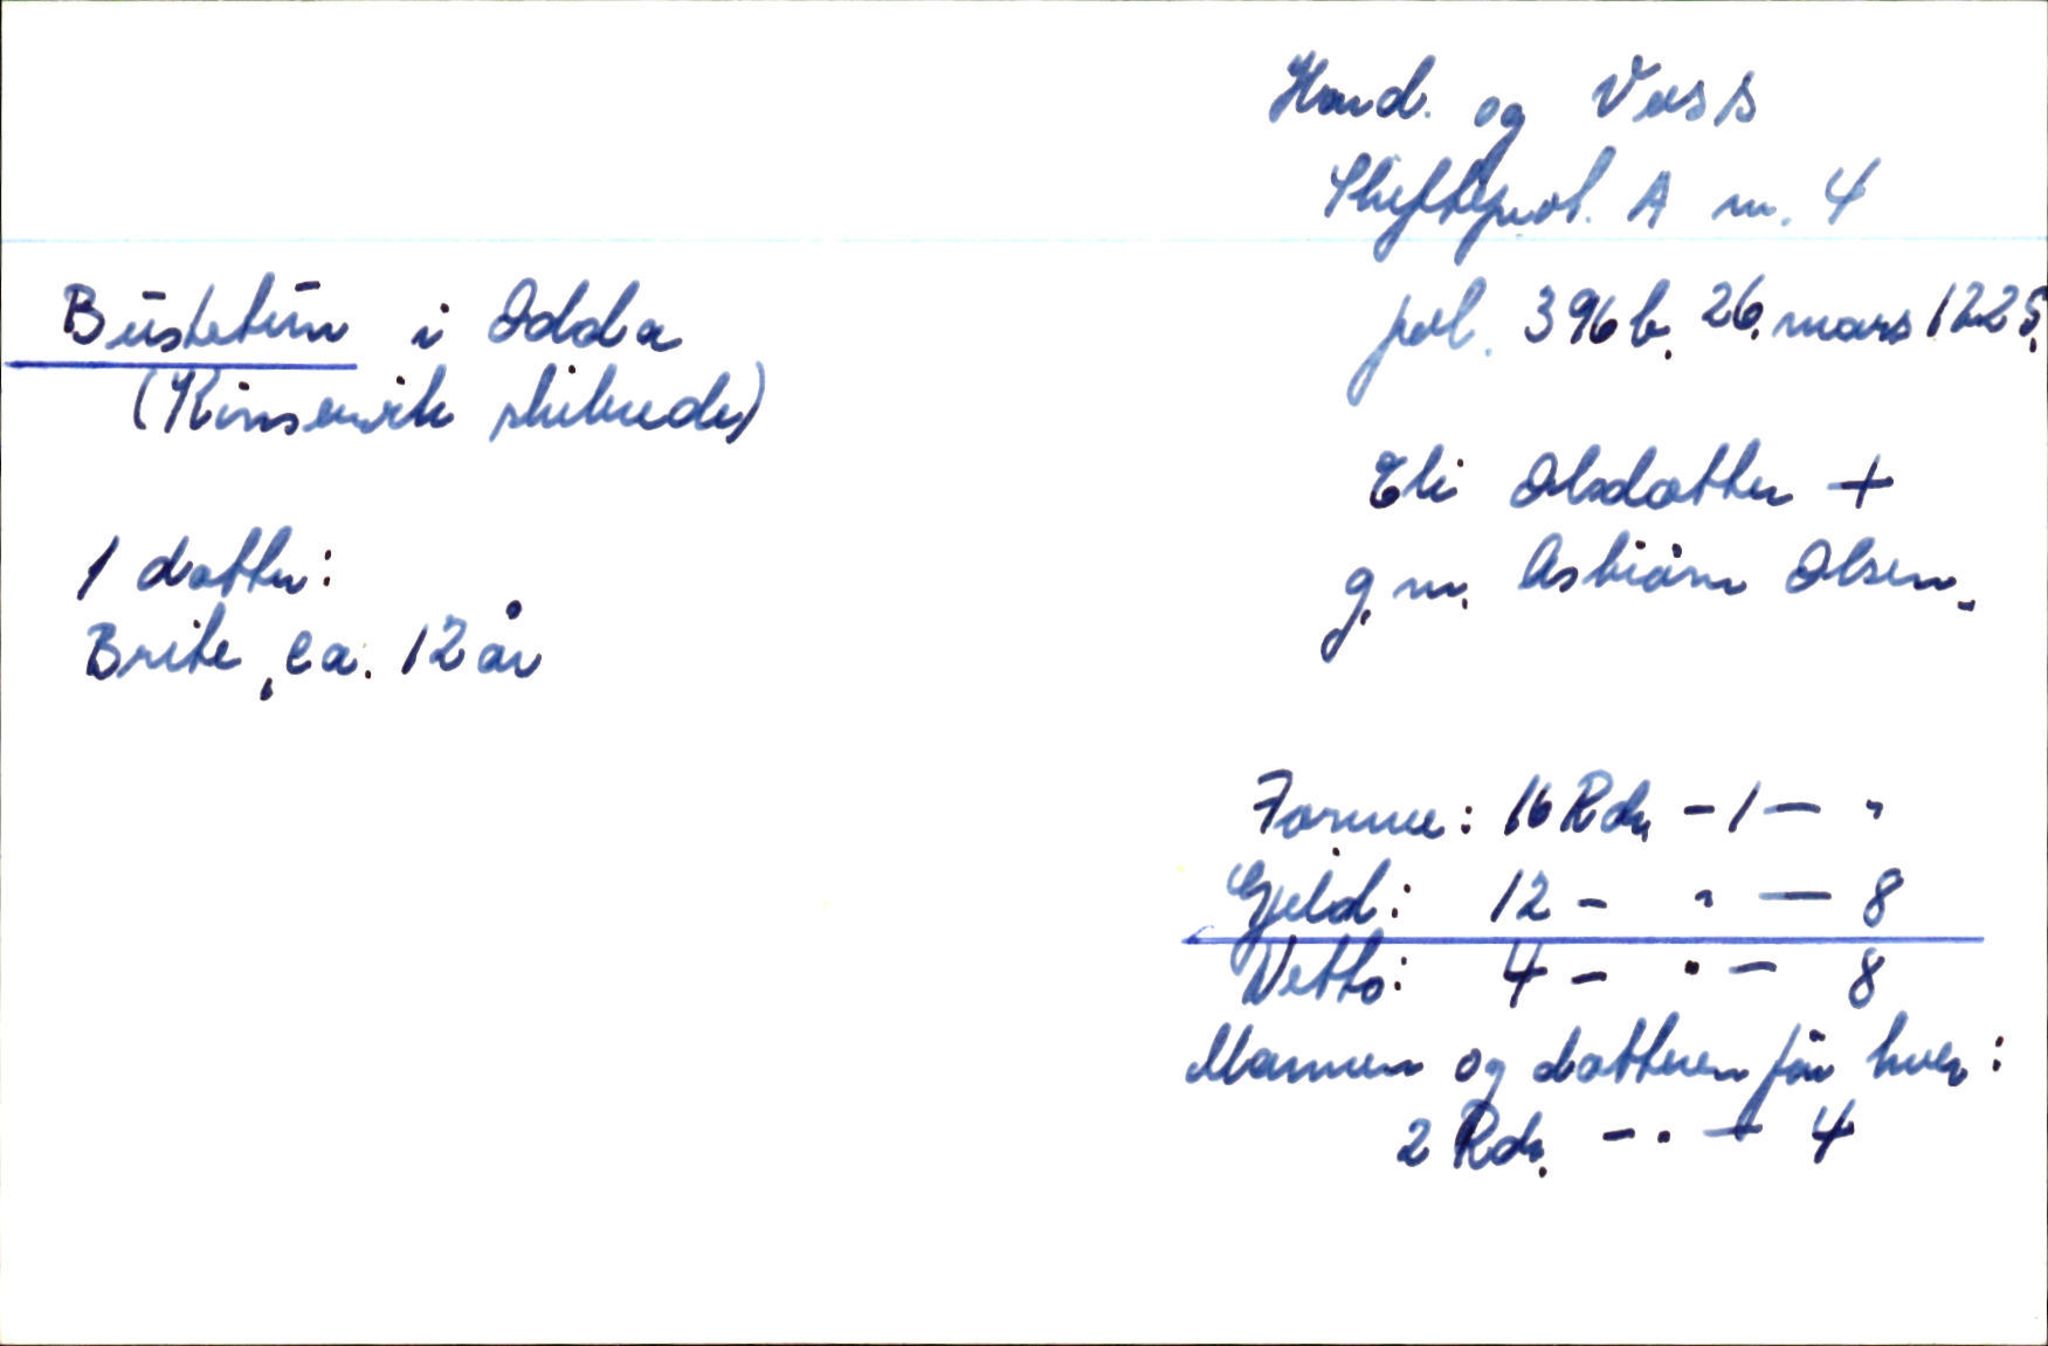 Hard. og Voss
Skifteprot. A nr. 4
fol. 396b. 26. mars 1725.
Bustetun i Odda
(Kinservik skibrede)
Eli Olsdatter +
g.m. Asbiörn Olsen.
1 datter:
Brite, ca. 12 år
Formue: 16 Rdr - 1 - "
Gjeld: 12 - " - 8
Netto: 4 - " - 8
Mannen og datteren får hver:
2 Rdr. - " - 4